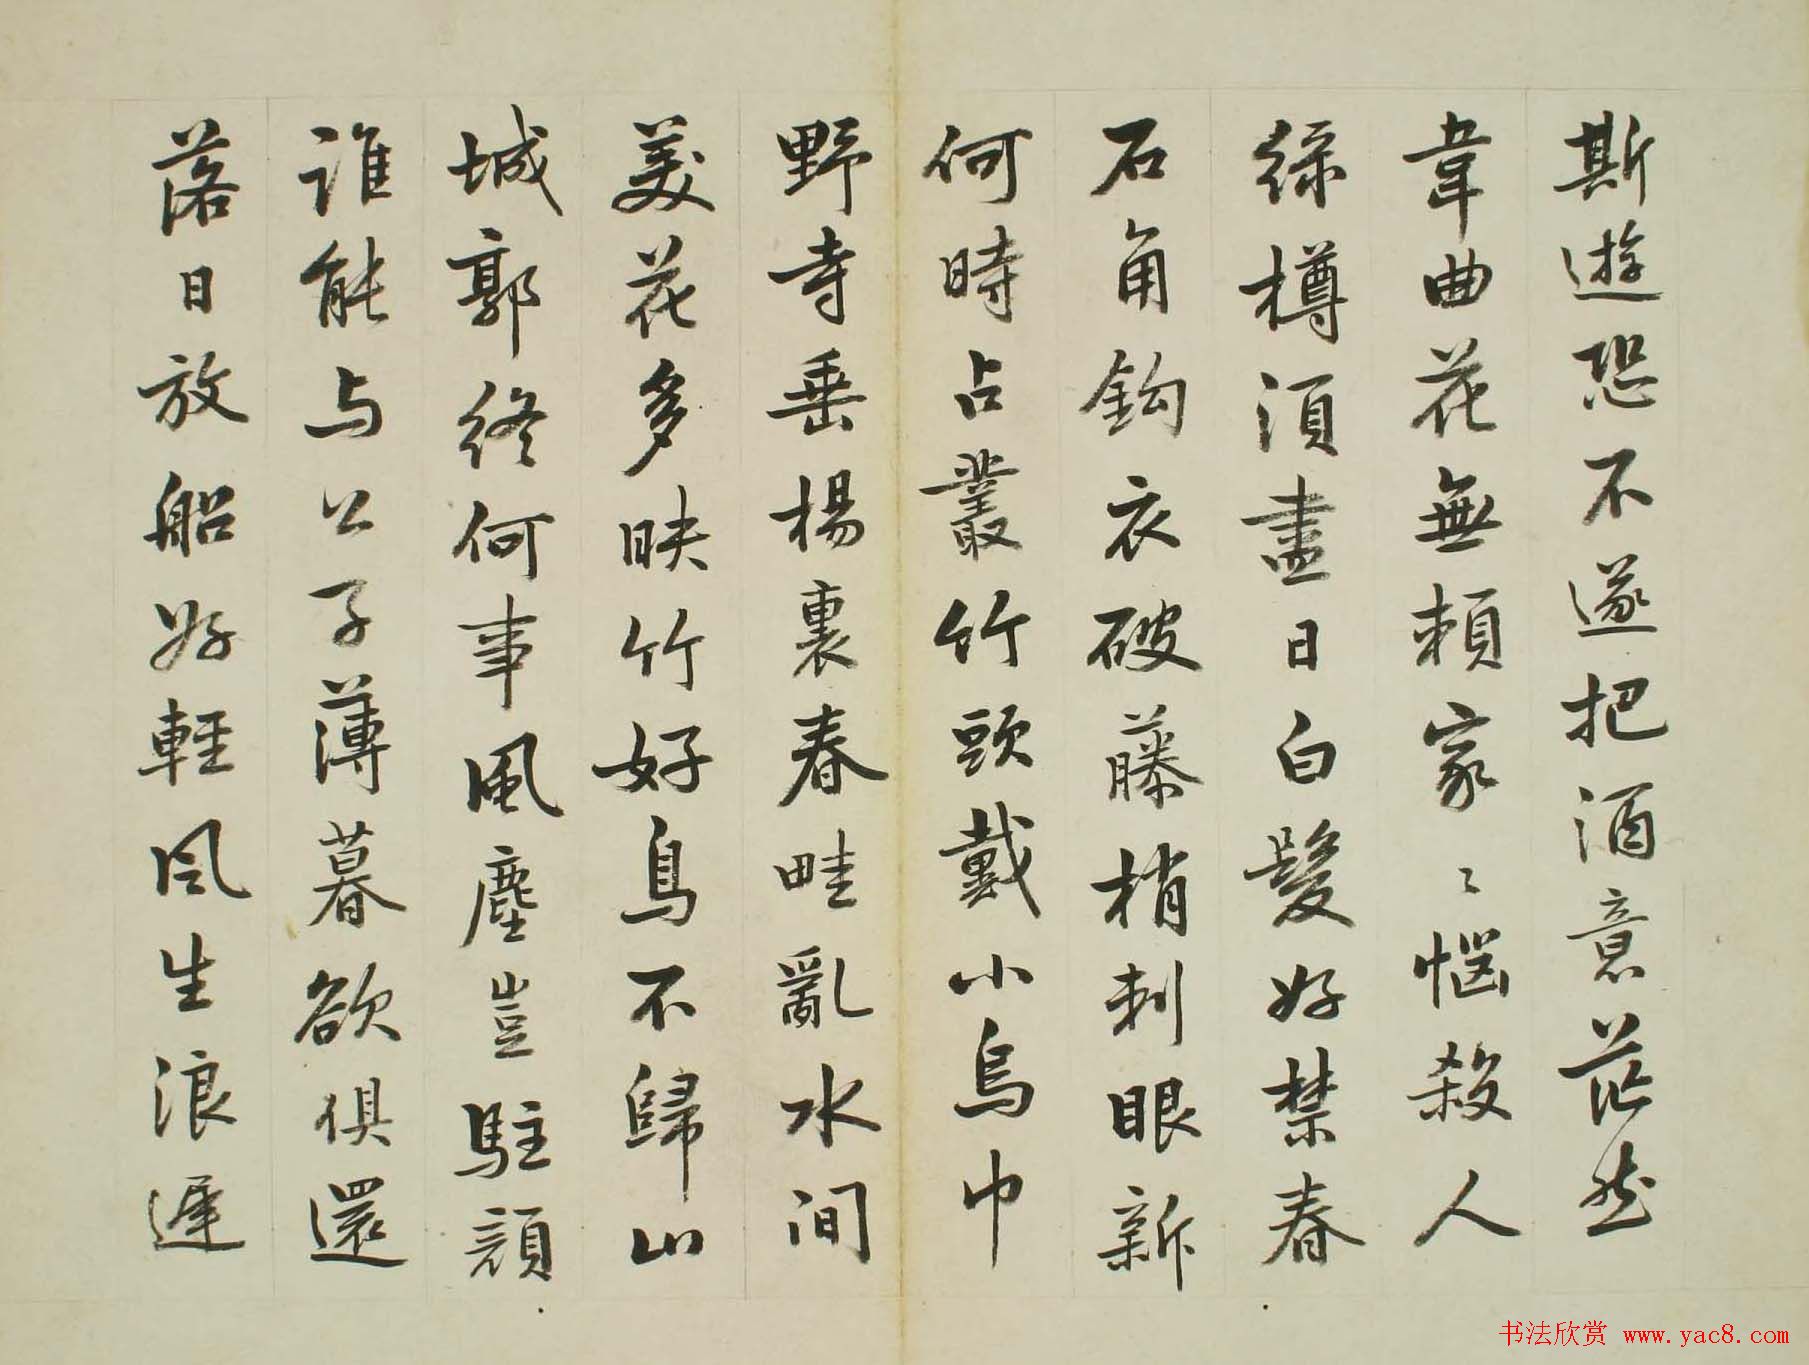 斯遊恐不遂把酒意茫然
韋曲花無頼家〻惱殺人
綠樽須盡日白髮好禁春
石角鈎衣破藤梢刺眼新
何時占叢竹頭戴小烏巾
野寺垂楊裏春畦亂水间
美花多映竹好鳥不歸山
城郭終何事風塵豈駐顔
誰能与公子薄暮欲俱還
落日放船好輕风生浪遲
书法欣赏 www.yac8.com